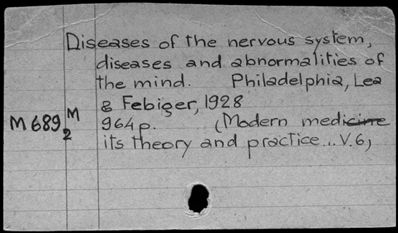 Diseases of the nervous system,
diseases and abnormalities of
the mind. Philadelphia, Lea
& Febiger, 1928
M689 M
2
964p. (Modern medicine
its theory and practice...V.6)